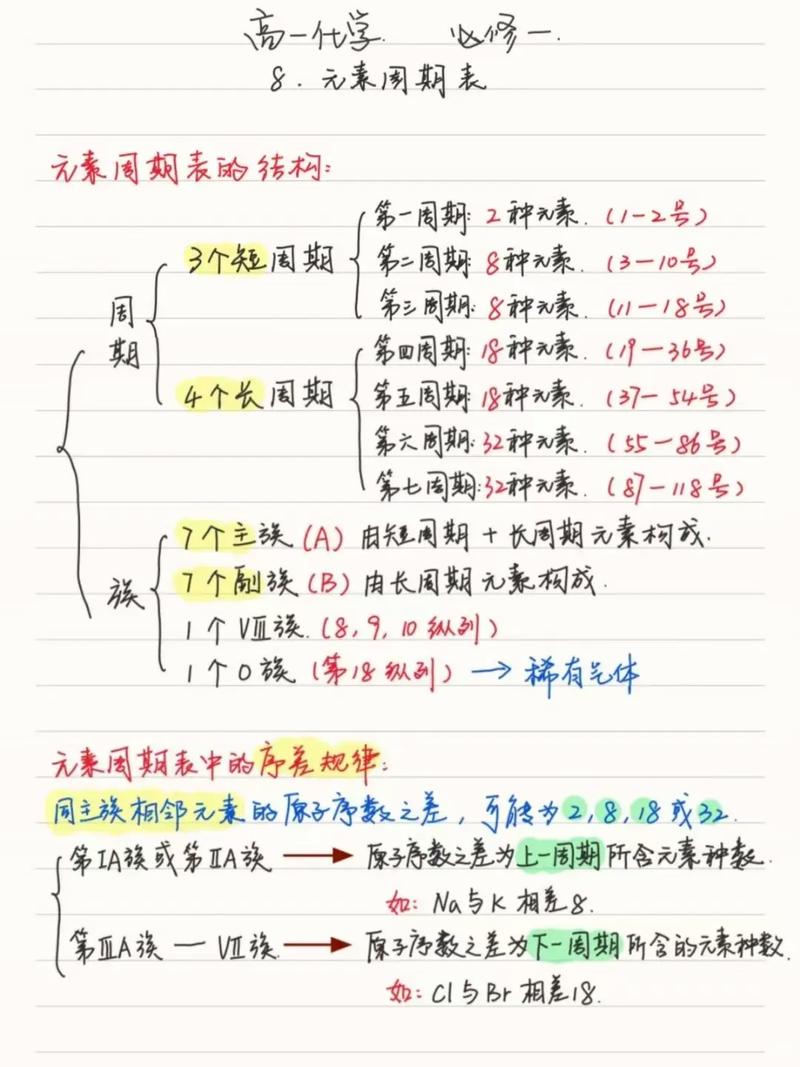 高一化学 必修一.
8. 元素周期表
元素周期表的结构:
周期
3个短周期
第一周期: 2种元素. (1-2号)
第二周期: 8种元素. (3-10号)
第三周期: 8种元素. (11-18号)
4个长周期
第四周期: 18种元素. (19-36号)
第五周期: 18种元素. (37-54号)
第六周期: 32种元素. (55-86号)
第七周期: 32种元素. (87-118号)
族
7个主族 (A) 由短周期+长周期元素构成.
7个副族 (B) 由长周期元素构成.
1个VIII族. (8, 9, 10纵列)
1个0族 (第18纵列) → 稀有气体
元素周期表中的序差规律:
同主族相邻元素的原子序数之差, 可能为2, 8, 18或32.
第IA族或第IIA族 → 原子序数之差为上一周期所含元素种数.
如: Na与K相差8.
第IIIA族 — VII族. → 原子序数之差为下一周期所含的元素种数.
如: Cl与Br相差18.